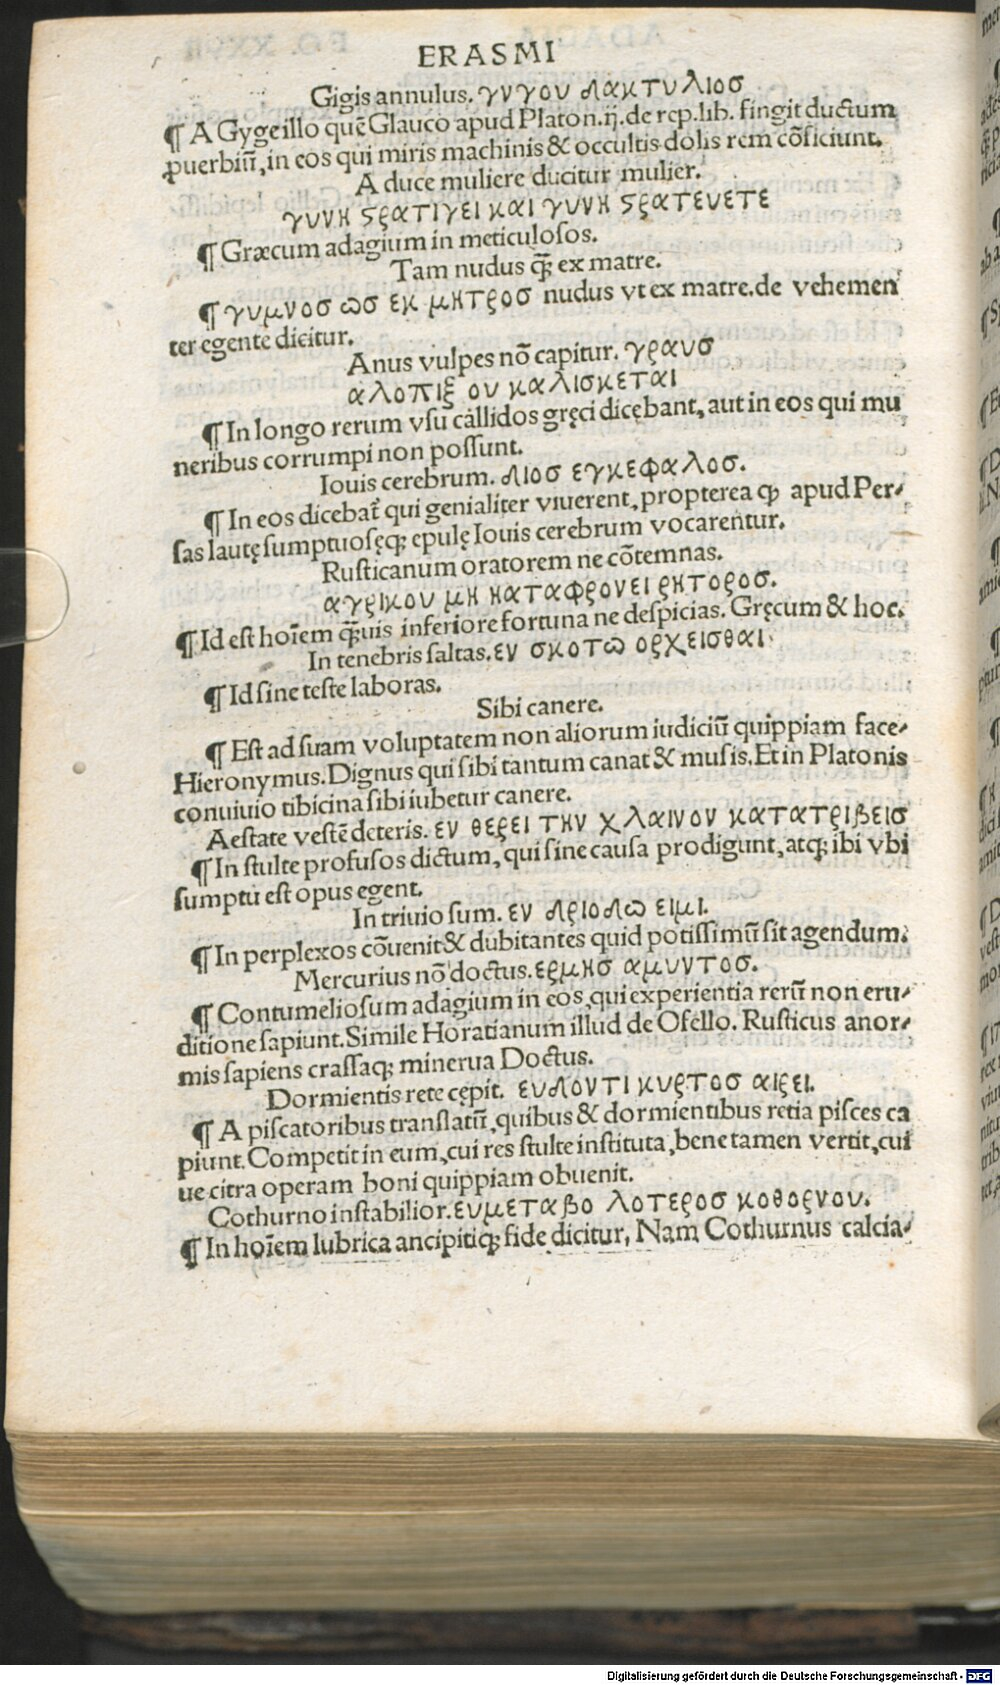 ERASMI
Gigis annulus. γυγου δακτυλιοσ
¶ A Gyge illo quē Glauco apud Platon.ij.de rep.lib. fingit ductum
ꝓuerbiū, in eos qui miris machinis & occultis dolis rem cōficiunt.
A duce muliere ducitur mulier.
γυνη ϛρατιγει και γυνη ϛρατευετε
¶ Græcum adagium in meticulosos.
Tam nudus q̄ ex matre.
¶ γυμνοσ ωσ εκ μητροσ nudus vt ex matre.de vehemen
ter egente dicitur.
Anus vulpes nō capitur. γραυσ
αλοπιξ ου καλισκεται
¶ In longo rerum vsu callidos gręci dicębant, aut in eos qui mu
neribus corrumpi non possunt.
Iouis cerebrum. διοσ εγκεφαλοσ.
¶ In eos dicebat̄ qui genialiter viuerent, propterea ꝙ apud Per-
sas lautę sumptuosęq; epulę Iouis cerebrum vocarentur.
Rusticanum oratorem ne cōtemnas.
αγρικου μη καταφρονει ρητοροσ.
¶ Id est hoīem q̄uis inferiore fortuna ne despicias. Gręcum & hoc.
In tenebris saltas. εν σκοτω ορχεισθαι
¶ Id sine teste laboras.
Sibi canere.
¶ Est ad suam voluptatem non aliorum iudiciū quippiam face-
Hieronymus. Dignus qui sibi tantum canat & musis. Et in Platonis
conuiuio tibicina sibi iubetur canere.
Aestate vestē deteris. εν θερει την χλαινον κατατριβεισ
¶ In stulte profusos dictum, qui sine causa prodigunt, atq; ibi vbi
sumptu est opus egent.
In triuio sum. εν δριοδω ειμι.
¶ In perplexos cōuenit & dubitantes quid potissimū sit agendum.
Mercurius nō doctus. ερμησ αμυντοσ.
¶ Contumeliosum adagium in eos, qui experientia rerū non eru-
ditione sapiunt. Simile Horatianum illud de Ofello. Rusticus anor-
mis sapiens crassaq; minerua Doctus.
Dormientis rete cępit. ευδοντι κυρτοσ αιρει.
¶ A piscatoribus translatū, quibus & dormientibus retia pisces ca
piunt. Competit in eum, cui res stulte instituta, bene tamen vertit, cui
ue citra operam boni quippiam obuenit.
Cothurno instabilior. ευμεταβο λοτεροσ κοθορνου.
¶ In hoīem lubrica ancipitiq; fide dicitur, Nam Cothurnus calcia-
Digitalisierung gefördert durch die Deutsche Forschungsgemeinschaft - DFG